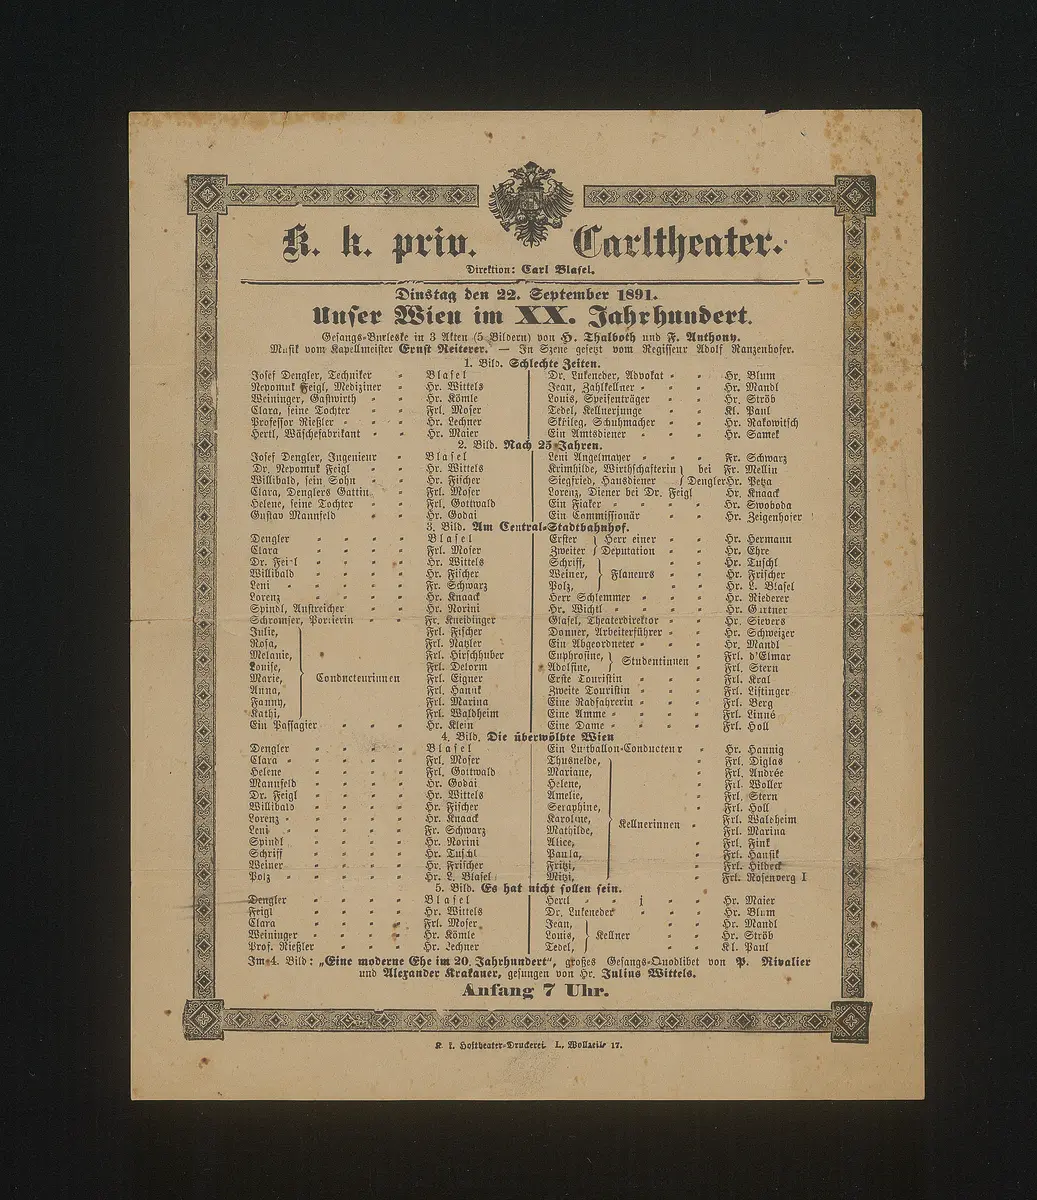 K. k. priv. Carltheater.
Direktion: Carl Blasel.
Dinstag den 22. September 1891.
Unser Wien im XX. Jahrhundert.
Gesangs-Burleske in 3 Akten (5 Bildern) von H. Thalboth und F. Anthony.
Musik vom Kapellmeister Ernst Reiterer. — In Szene gesetzt vom Regisseur Adolf Ranzenhofer.
1. Bild. Schlechte Zeiten.
Josef Dengler, Techniker - Blasel
Nepomuk Feigl, Mediziner - Hr. Wittels
Weininger, Gastwirth - - Hr. Kömle
Clara, seine Tochter - - Frl. Moser
Professor Nießler - - - Hr. Lechner
Hertl, Wäschefabrikant - - Hr. Maier
Dr. Lukeneder, Advokat - - Hr. Blum
Jean, Zahlkellner - - - Hr. Mandl
Louis, Speisenträger - - Hr. Ströb
Tedel, Kellnerjunge - - Kl. Paul
Skrileg, Schuhmacher - - Hr. Rakowitsch
Ein Amtsdiener - - Hr. Samek
2. Bild. Nach 25 Jahren.
Josef Dengler, Ingenieur - Blasel
Dr. Nepomuk Feigl - - Hr. Wittels
Willibald, sein Sohn - - Hr. Fischer
Clara, Denglers Gattin - Frl. Moser
Helene, seine Tochter - - Frl. Gottwald
Gustav Mannsfeld - - Hr. Godai
Leni Angelmayer - - - Fr. Schwarz
Krimhilde, Wirthschafterin } bei Fr. Mellin
Siegfried, Hausdiener } Dengler Hr. Petza
Lorenz, Diener bei Dr. Feigl Hr. Knaack
Ein Fiaker - - - Hr. Swoboda
Ein Commissionär - - Hr. Zeigenhofer
3. Bild. Am Central-Stadtbahnhof.
Dengler - - - - Blasel
Clara - - - - Frl. Moser
Dr. Feigl - - - - Hr. Wittels
Willibald - - - - Hr. Fischer
Leni - - - - - Fr. Schwarz
Lorenz - - - - Hr. Knaack
Spindl, Anstreicher - - Hr. Norini
Schromser, Portierin - - Fr. Kneidinger
Julie, Frl. Fischer
Rosa, Frl. Natzler
Melanie, Frl. Hirschhuber
Louise, Frl. Delorm
Marie, } Conducteurinnen Frl. Eigner
Anna, Frl. Hansik
Fanny, Frl. Marina
Kathi, Frl. Waldheim
Ein Passagier - - - Hr. Klein
Erster } Herr einer - - Hr. Hermann
Zweiter } Deputation - - Hr. Ehre
Schriff, Hr. Tuschl
Weiner, } Flaneurs - - Hr. Frischer
Polz, Hr. L. Blasel
Herr Schlemmer - - - Hr. Riederer
Hr. Wichtl - - - - Hr. Gärtner
Glasel, Theaterdirektor - - Hr. Sievers
Donner, Arbeiterführer - - Hr. Schweizer
Ein Abgeordneter - - Hr. Mandl
Euphrosine, } Studentinnen - Frl. d'Elmar
Adolfine, Frl. Stern
Erste Touristin - - - Frl. Kral
Zweite Touristin - - - Frl. Listinger
Eine Radfahrerin - - - Frl. Berg
Eine Amme - - - - Frl. Linné
Eine Dame - - - - Frl. Holl
4. Bild. Die überwölbte Wien
Dengler - - - - Blasel
Clara - - - - - Frl. Moser
Helene - - - - Frl. Gottwald
Mannsfeld - - - - Hr. Godai
Dr. Feigl - - - - Hr. Wittels
Willibald - - - - Hr. Fischer
Lorenz - - - - - Hr. Knaack
Leni - - - - - Fr. Schwarz
Spindl - - - - Hr. Norini
Schriff - - - - Hr. Tuschl
Weiner - - - - Hr. Frischer
Polz - - - - - Hr. L. Blasel
Ein Luftballon-Conducteur - Hr. Hannig
Thusnelde, Frl. Diglas
Mariane, Frl. Andrée
Helene, Frl. Woller
Amelie, Frl. Stern
Seraphine, Frl. Holl
Karoline, } Kellnerinnen - Frl. Waldheim
Mathilde, Frl. Marina
Alice, Frl. Fink
Paula, Frl. Hansik
Fritzi, Frl. Hildeck
Mitzi, Frl. Rosenberg I
5. Bild. Es hat nicht sollen sein.
Dengler - - - - Blasel
Feigl - - - - Hr. Wittels
Clara - - - - Frl. Moser
Weininger - - - - Hr. Kömle
Prof. Nießler - - - Hr. Lechner
Hertl - - - Hr. Maier
Dr. Lukeneder - - - Hr. Blum
Jean, Hr. Mandl
Louis, } Kellner - - - Hr. Ströb
Tedel, Kl. Paul
Im 4. Bild: „Eine moderne Ehe im 20. Jahrhundert“, großes Gesangs-Quodlibet von P. Rivalier
und Alexander Krakauer, gesungen von Hr. Julius Wittels.
Anfang 7 Uhr.
K. k. Hoftheater-Druckerei. I., Wollzeile 17.